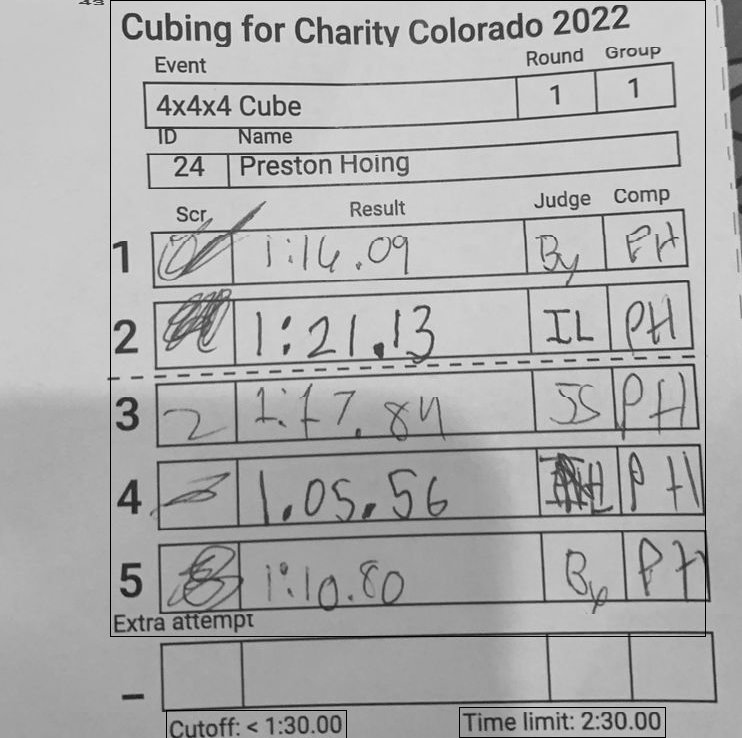 Cubing for Charity Colorado 2022
Event Round Group
4x4x4 Cube 1 1
ID Name
24 Preston Hoing
Scr Result Judge Comp
1 1:14.09 By PH
2 1:21.13 IL PH
3 2 1:17.84 JS PH
4 1.05.56 PH
5 1:10.80 By PH
Extra attempt
_
Cutoff: < 1:30.00 Time limit: 2:30.00